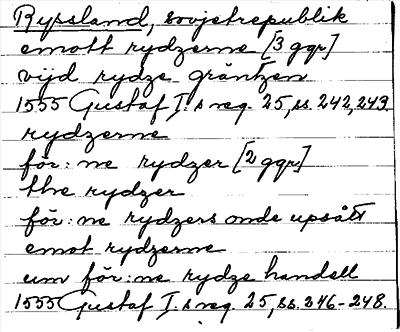 Ryssland, sovjetrepublik
emott rydzerne [3 ggr]
vijd rydze gräntzen
1555 Gustaf I:s reg. 25, ss. 242, 249.
rydzerne
för:ne rydzer [2 ggr]
the rydzer
för:ne rydzers onde upsått
emot rydzerne
um för:ne rydze handell
1555 Gustaf I:s reg. 25, ss. 246-248.